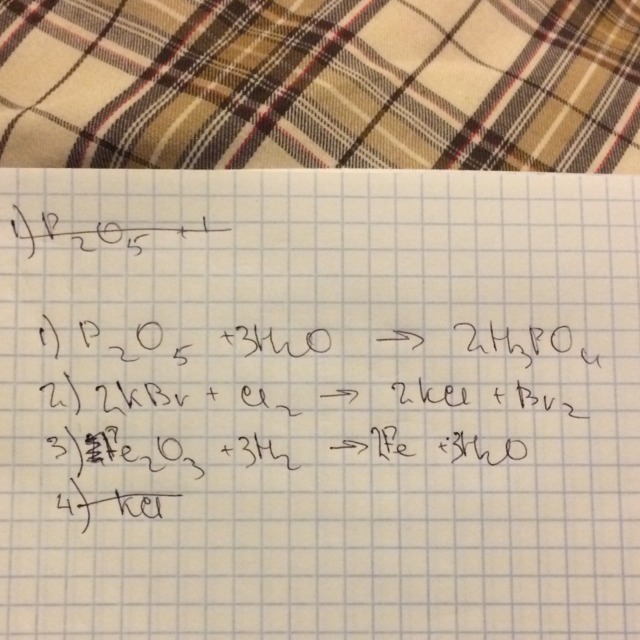 1) P₂O₅ + 
1) P₂O₅ + 3H₂O → 2H₃PO₄
2) 2KBr + Cl₂ → 2KCl + Br₂
3) Fe₂O₃ + 3H₂ → 2Fe + 3H₂O
4) KCl